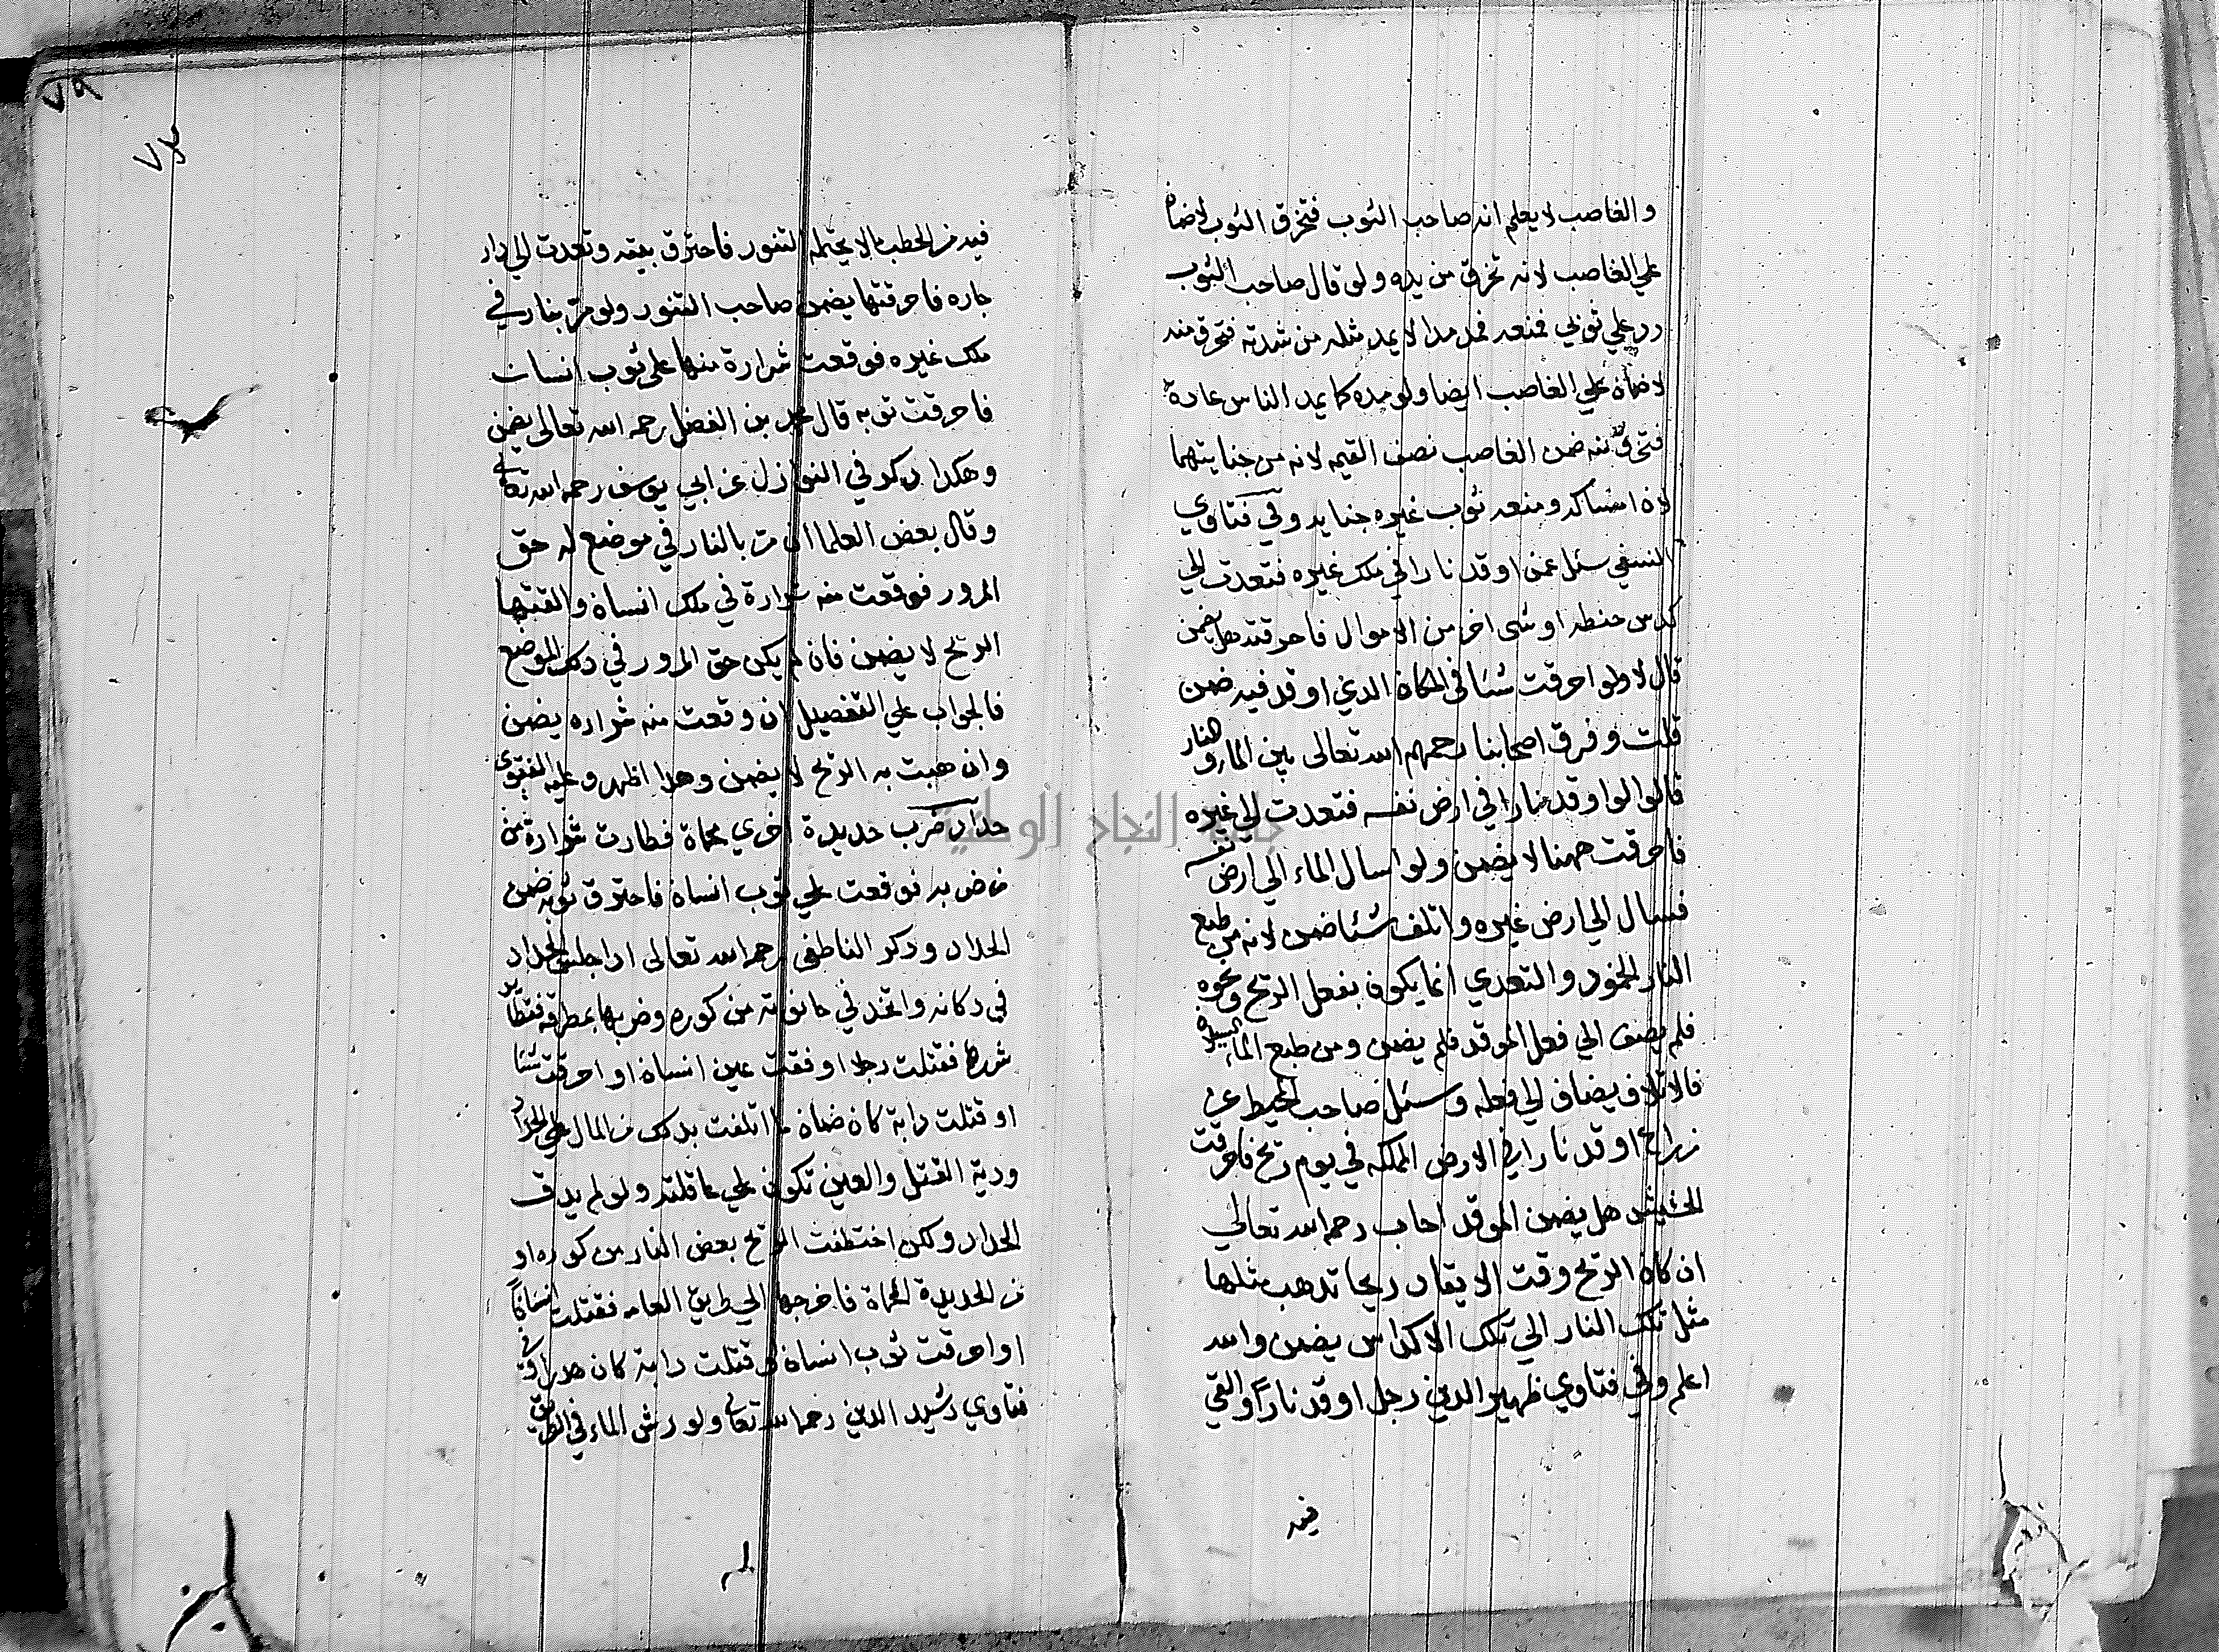 والغاصب لا يعلم انه صاحب الثوب فتخرق الثوب لا ضمان
علي الغاصب لانه تخرق من يده ولو قال صاحب الثوب
رد علي ثوبي فمنعه فمد مدا لا يمد مثله من شدته فتخرق منه
لا ضمان علي الغاصب ايضا ولو مده كما يمد الناس عادة
فتخرق منه ضمن الغاصب نصف القيمه لانه من جنايتهما
لان امساكه ومنعه ثوب غيره جنايه وفي فتاوي
النسفي سئل عمن اوقد نارا في ملك غيره فتعدت الي
كدس حنطه او شي اخر من الاموال فاحرقته هل يضمن
قال لا ولو احرقت شئا في المكان الدي اوقد فيه ضمن
قلت وفرق اصحابنا رحمهم الله تعالى بين الما والنار
قالوا لو اوقد نارا في ارض نفسه فتعدت الي غيره
فاحرقت ههنا لا يضمن ولو اسال الماء الي ارض نفسه
فسال الي ارض غيره واتلف شئا ضمن لانه من طبع
النار الخمود والتعدي انما يكون بفعل الريح ونحوه
فلم يضف الي فعل الموقد فلم يضمن ومن طبع الماء السيلان
فالاتلاف يضاف الي فعله وسئل صاحب المحيط عن
زراع اوقد نارا في الارض المملكه في يوم ريح فاحرقت
الحشيش هل يضمن الموقد اجاب رحمه الله تعالي
ان كان الريح وقت الايقاد ريحا تدهب مثلها
مثل تلك النار الي تلك الاكداس يضمن والله
اعلم وفي فتاوي ظهير الدين رجل اوقد نارا والقي
فيه
٧٩
فيه من الحطب ما لا يحتمله التنور فاحترق بيته وتعدت الي دار
جاره فاحرقتها يضمن صاحب التنور ولو مر بنار في
ملك غيره فوقعت شرارة منها على ثوب انسان
فاحرقت ثوبه قال محمد بن الفضل رحمه الله تعالى يضمن
وهكدا دكر في النوازل عن ابي يوسف رحمه الله تعالي
وقال بعض العلما ان مر بالنار في موضع له حق
المرور فوقعت منه شرارة في ملك انسان والقتها
الريح لا يضمن فان لم يكن حق المرور في دلك الموضع
فالجواب علي التفصيل ان وقعت منه شراره يضمن
وان هبت به الريح لا يضمن وهدا اظهر وعليه الفتوى
حداد ضرب حديدة اخري محماة فطارت شرارة من
من ضربه فوقعت علي ثوب انسان فاحترق ثوبه ضمن
الحداد ودكر الناطفي رحمه الله تعالى ادا جلس الحداد
في دكانه واتخد في حانوته من كوره وضربها بمطرقه فتطاير
شررها فقتلت رجلا او فقئت عين انسان او احرقت شئا
او قتلت دابة كان ضمان ما اتلفت بدلك من المال علي الحداد
ودية القتل والعين تكون علي عاقلته ولو لم يدق
الحداد ولكن اختطفت الريح بعض النار من كوره او
من الحديدة المحماة فاخرجها الي طريق العامه فقتلت انسانا
او احرقت ثوب انسان او قتلت دابة كان هدرا وفي
فتاوي رشيد الدين رحمه الله تعالى ولو رش الماء في الطريق
جامعة النجاح الوطنية